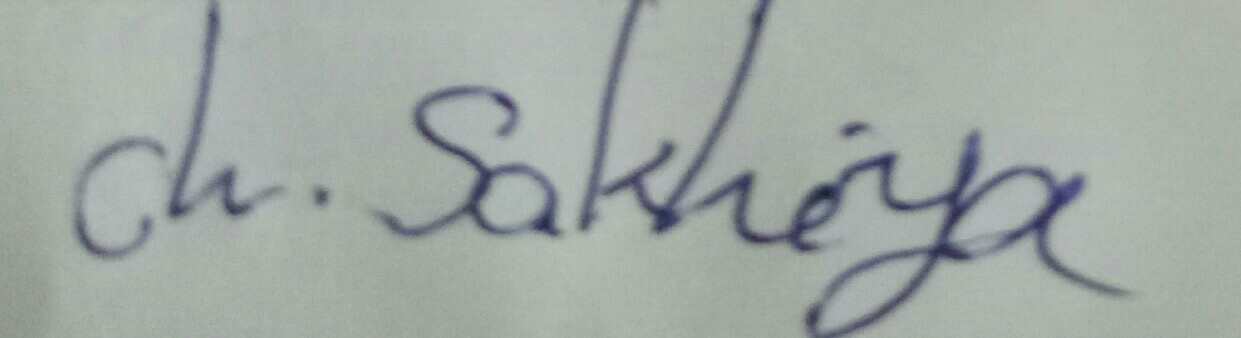 ch. Sakhiya